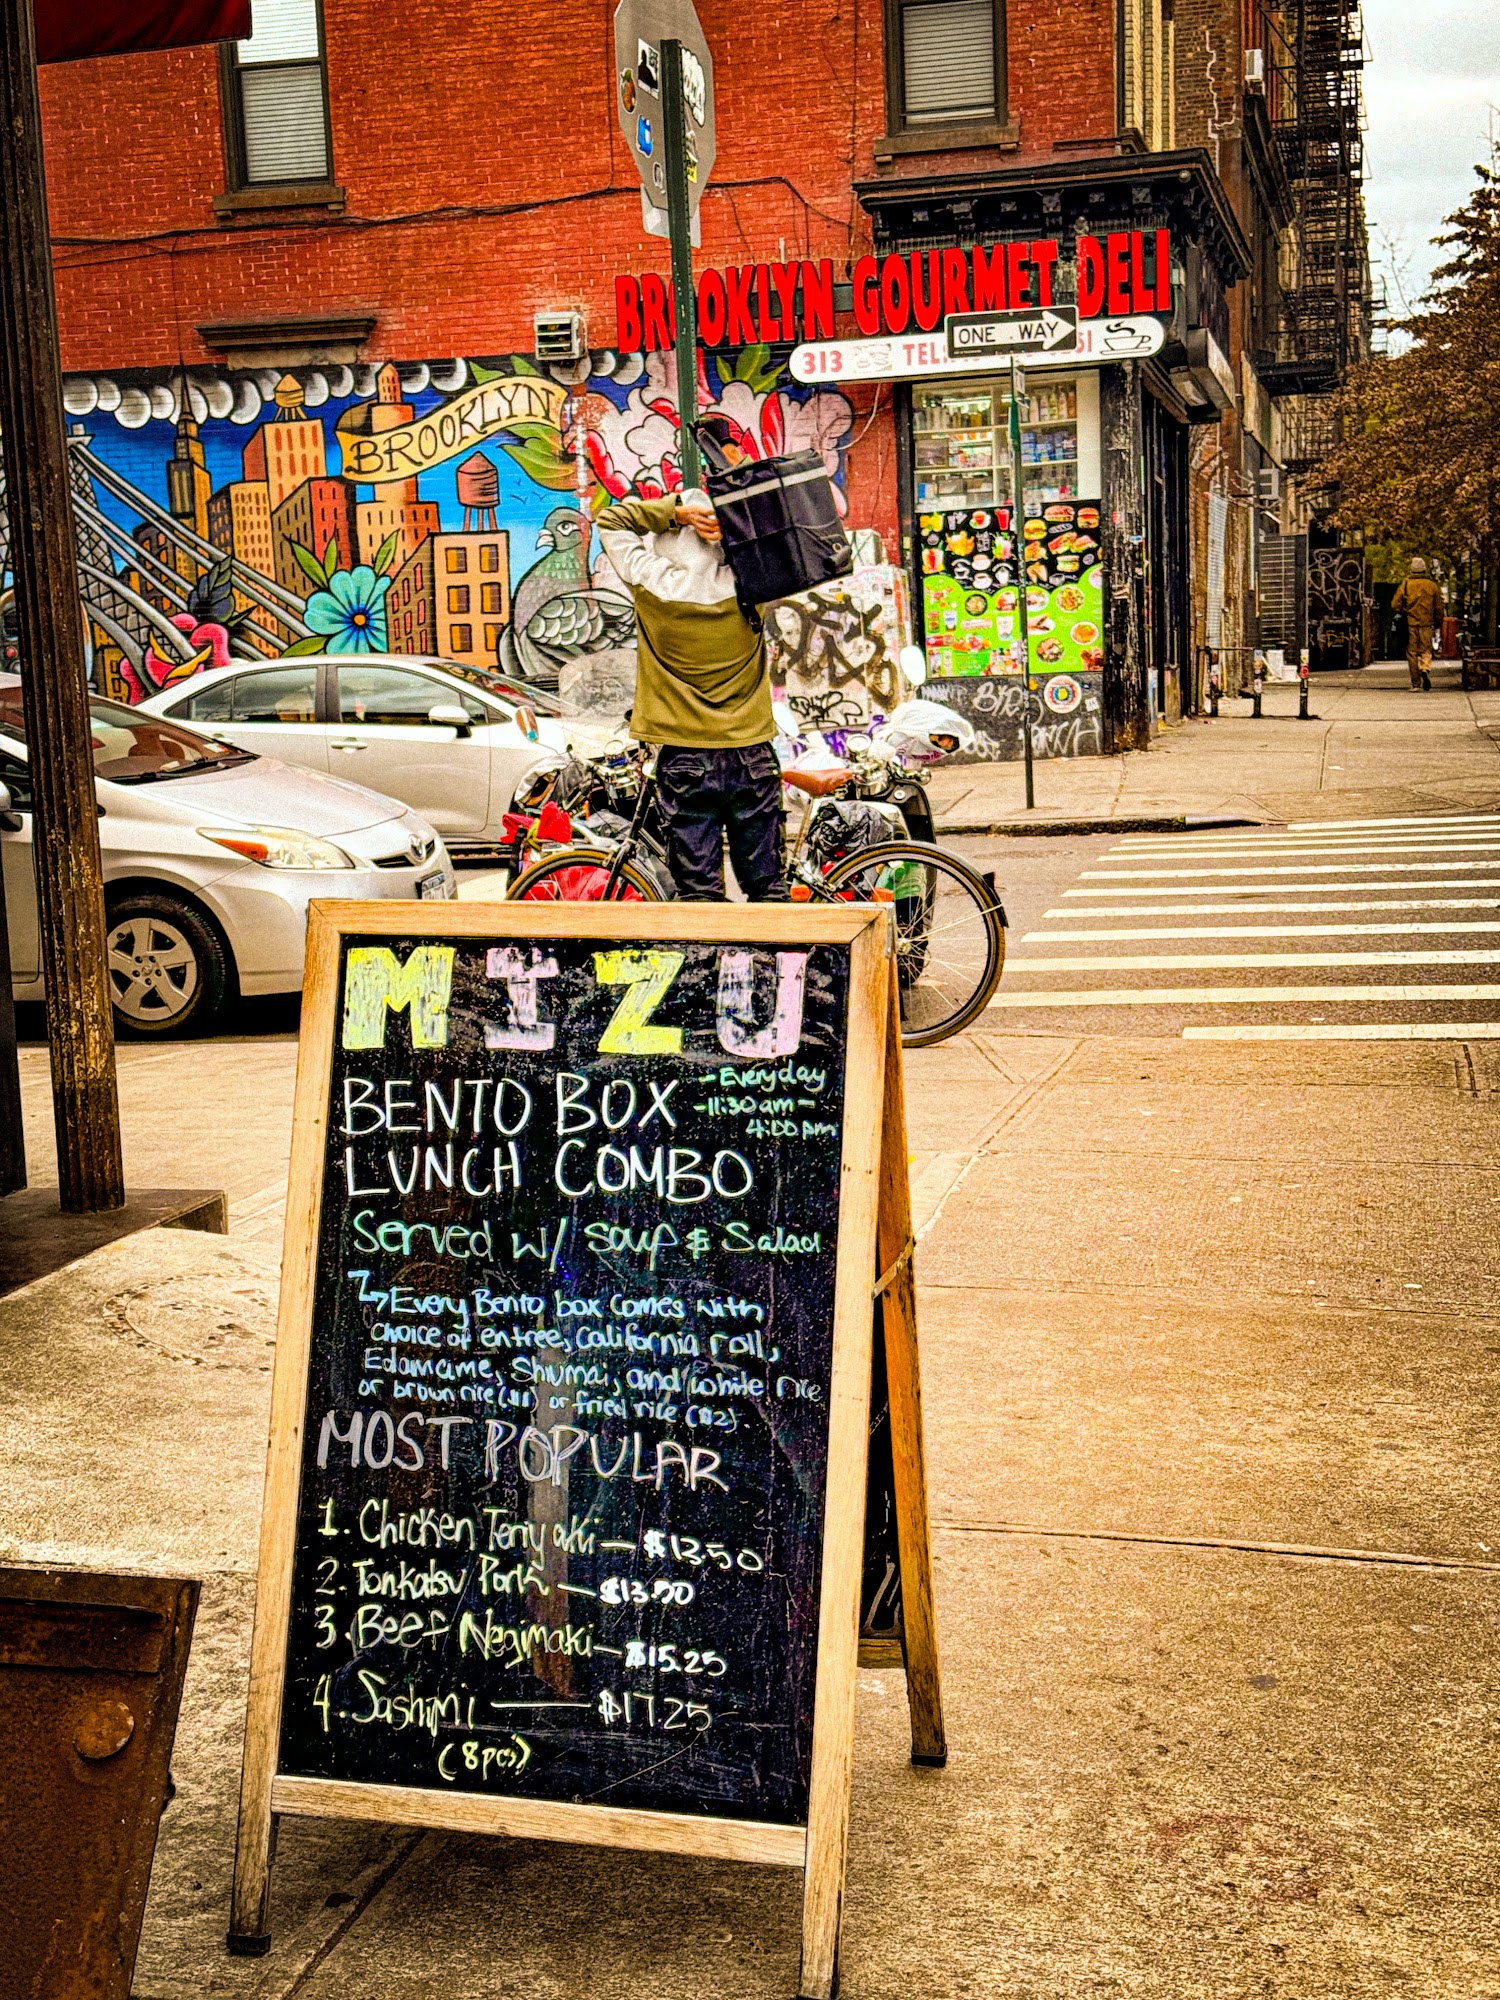 BROOKLYN GOURMET DELI
ONE WAY
313 TEL:
BROOKLYN
MIZU
BENTO BOX
- Everyday
-11:30 am -
4:00 pm
LUNCH COMBO
Served w/ soup & Salad
Every Bento box comes with
choice of entree, California roll,
Edamame, Shumai, and white rice
or brown rice ($1) or fried rice ($2).
MOST POPULAR
1. Chicken Teriyaki — $13.50
2. Tonkatsu Pork — $13.50
3. Beef Negimaki — $15.25
4. Sashimi — $17.25
(8pcs)